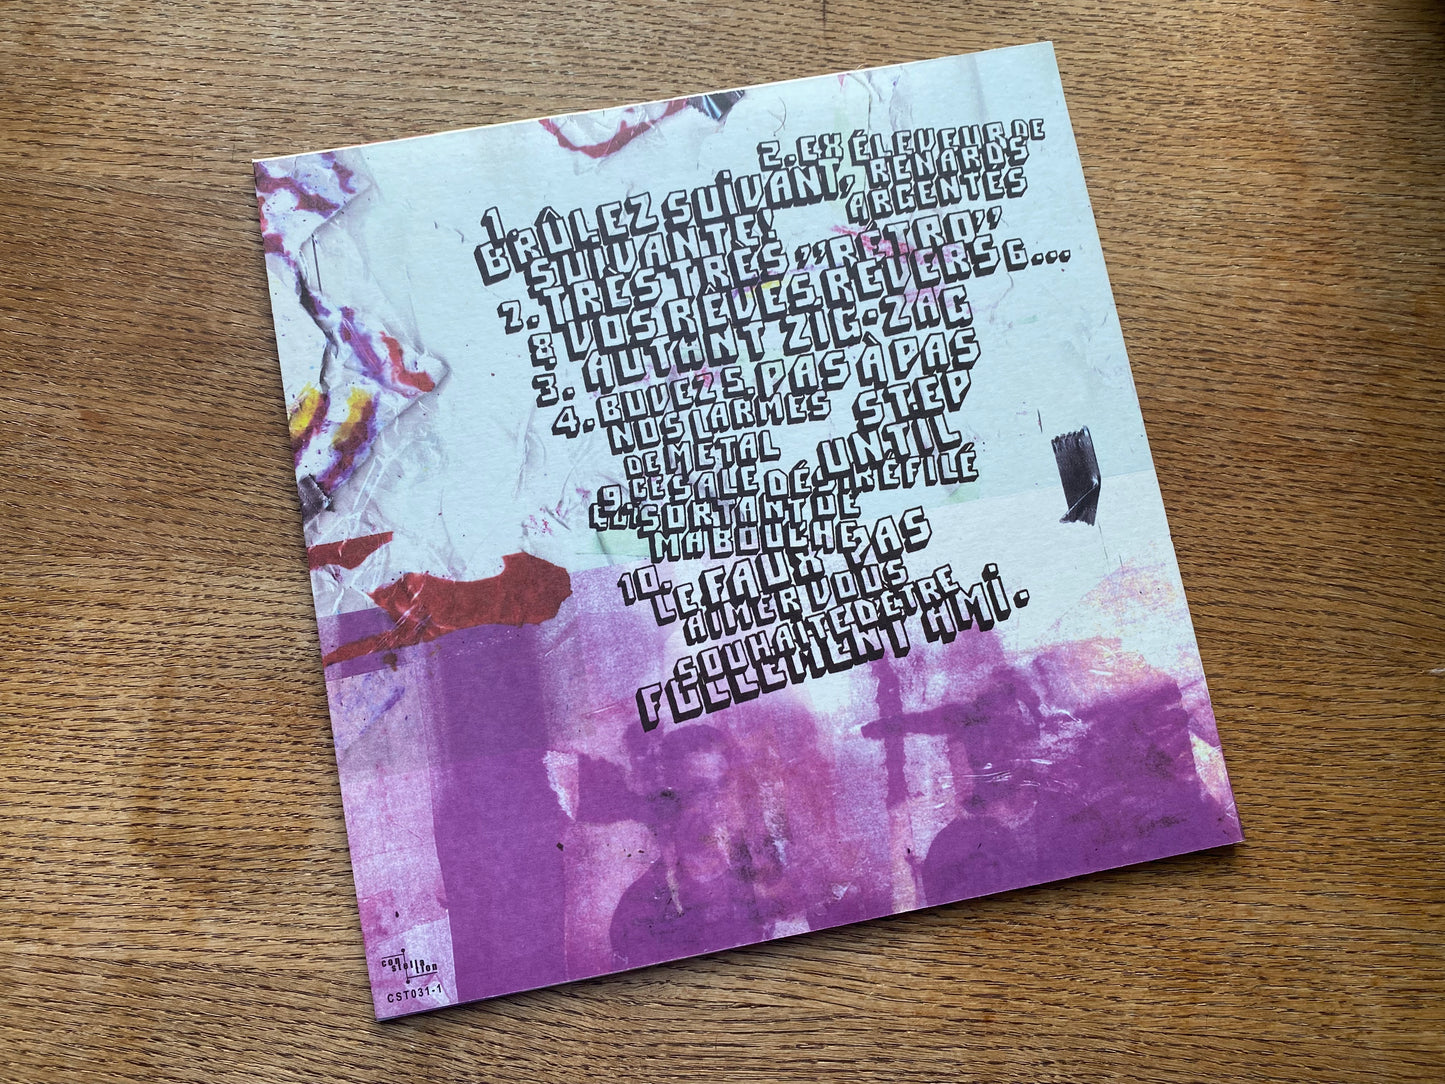 2. EX ÉLEVEUR DE
RENARDS
ARGENTES
1.
BRÛLEZ SUIVANT,
SUIVANTE!
7. TRÈS TRÈS "RÉTRO"
8. VOS RÊVES REVERS 6...
3. AUTANT ZIG-ZAG
4. BUVEZ 5. PAS À PAS
NOS LARMES STEP
DE METAL UNTIL
9. CE SALE DÉFILÉ
SORTANT DE
MA BOUCHE
10. LE FAUX PAS
AIMER VOUS
SOUHAITE D'ÊTRE
FOLLEMENT AMI.
constellation
CST031-1